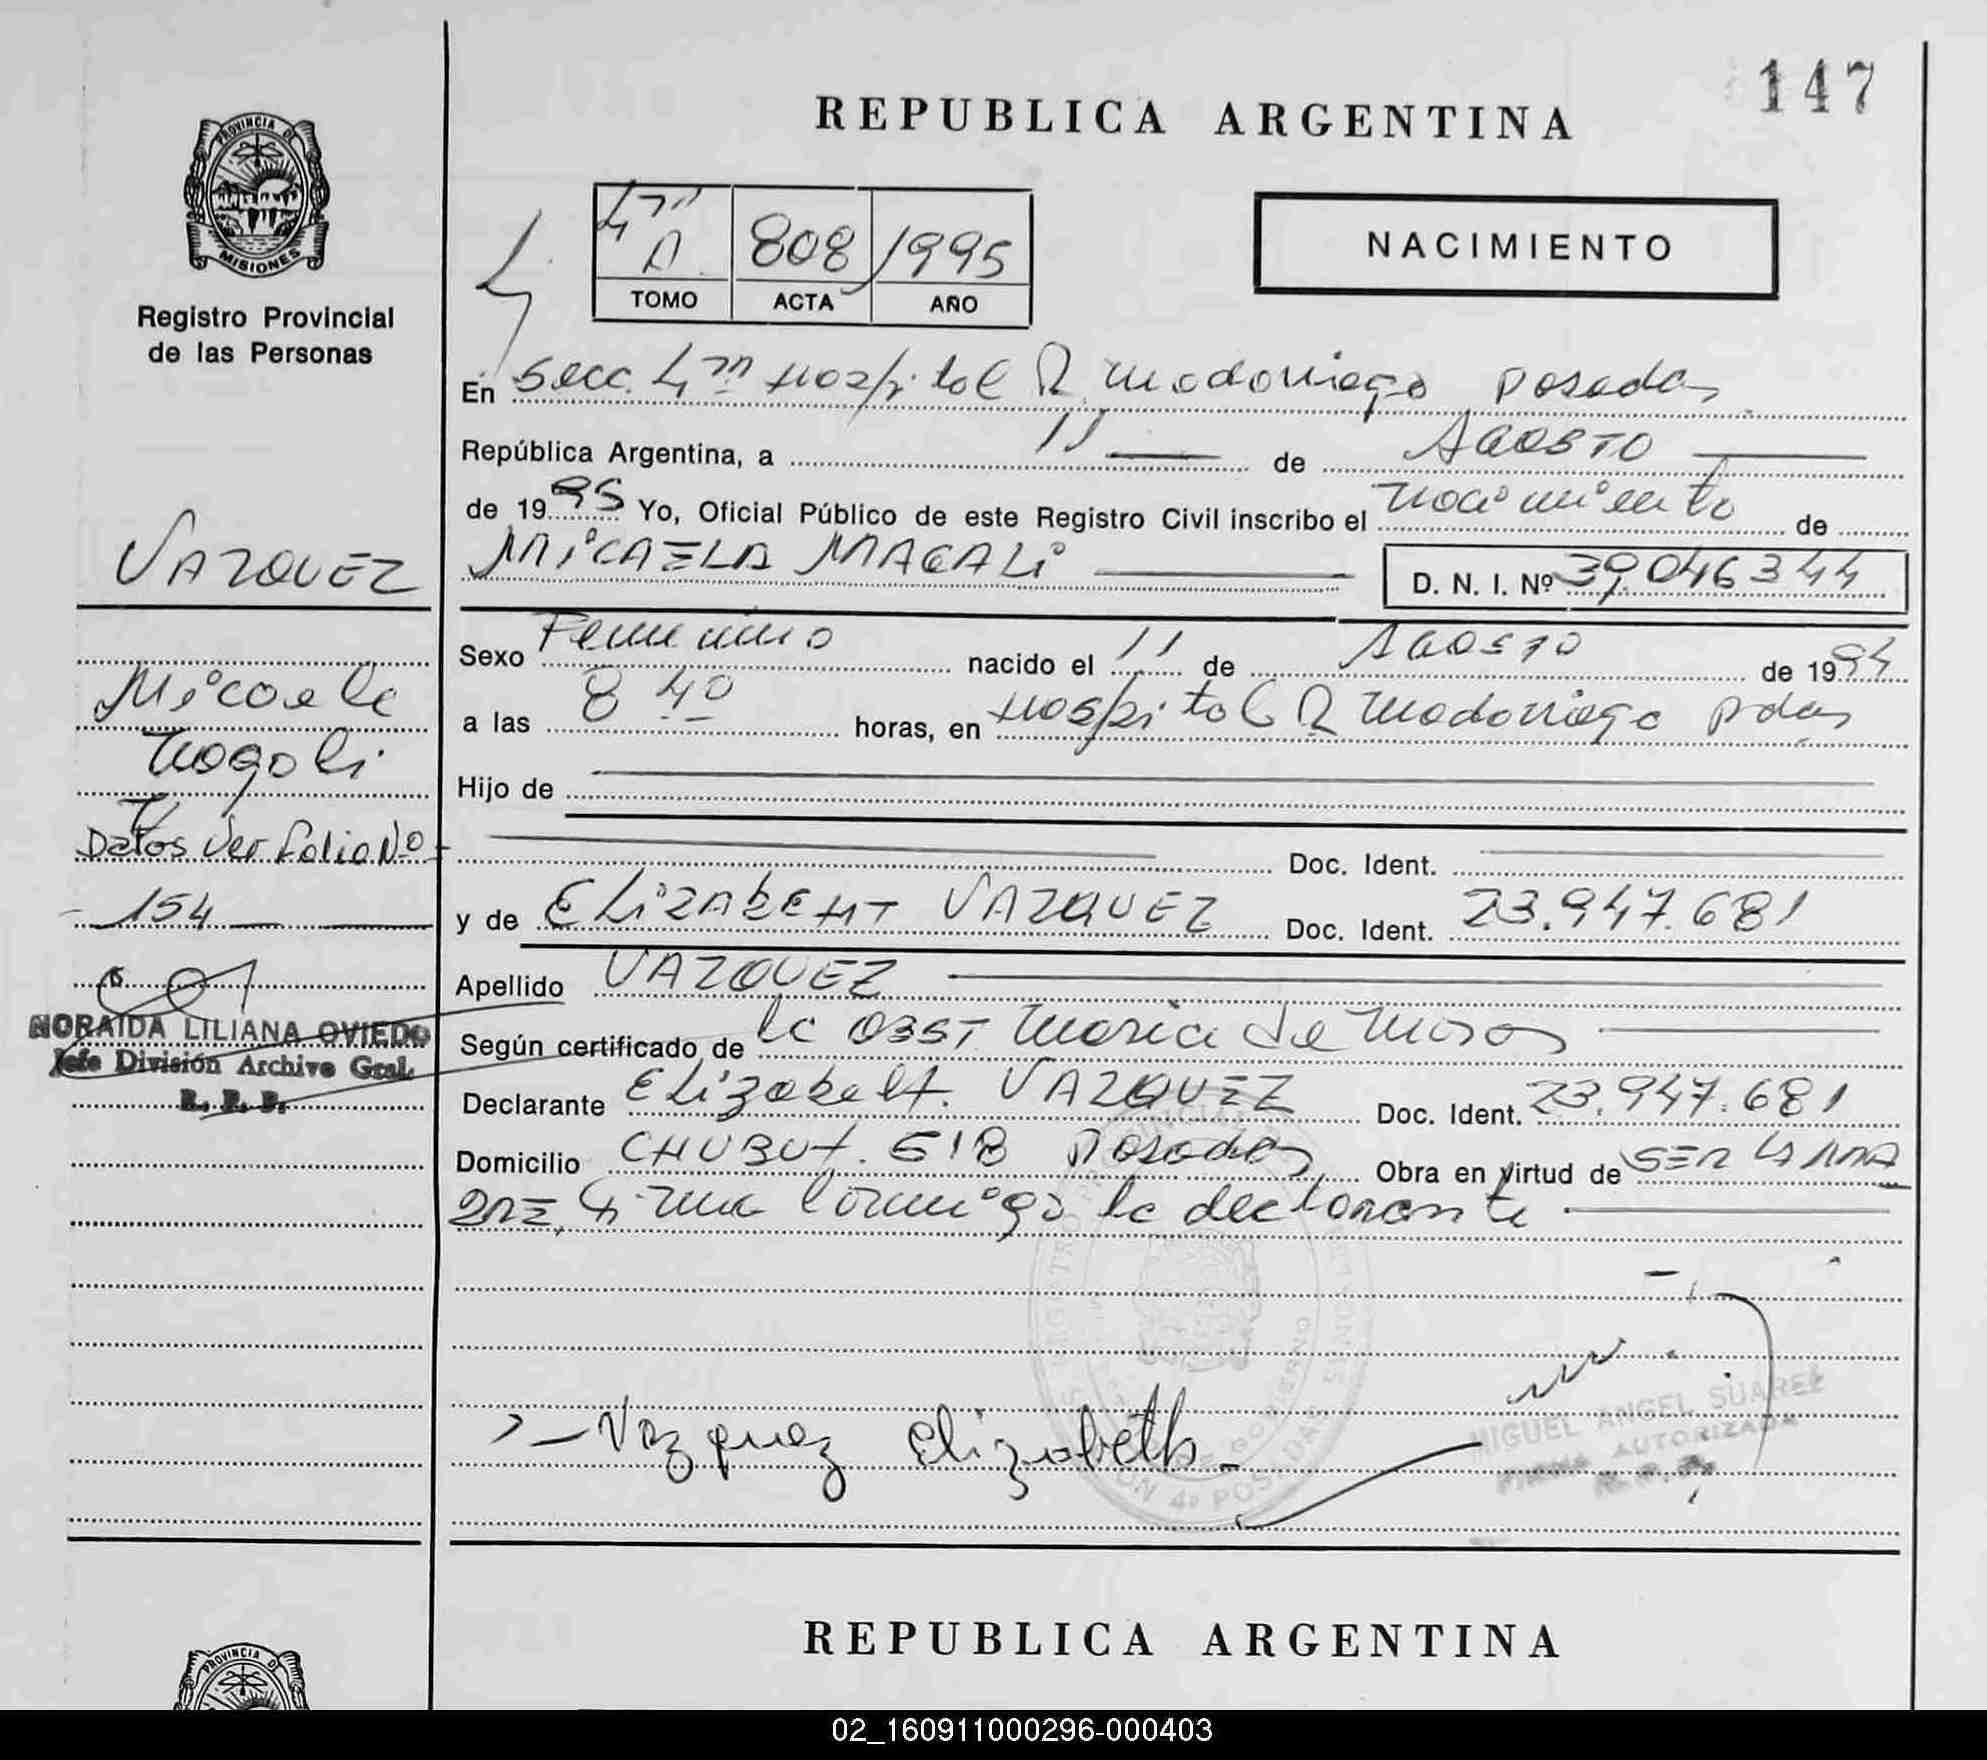 147
REPUBLICA ARGENTINA
PROVINCIA DE
MISIONES
Registro Provincial
de las Personas
4ta A. 808 1995
TOMO ACTA AÑO
NACIMIENTO
En Secc. 4ta Hospital R Madariaga Posadas
República Argentina, a 11 de AGOSTO
de 1995 Yo, Oficial Público de este Registro Civil inscribo el nacimiento de
VAZQUEZ
MICAELA MAGALI D. N. I. Nº 39.046344
Sexo Femenino nacido el 11 de AGOSTO de 1994
Micaela
a las 8 40 horas, en Hospital R Madariaga Pdas
Magali
Hijo de
Datos Ver folio Nº
Doc. Ident.
154
y de ELIZABEHT VAZQUEZ Doc. Ident. 23.947.681
Apellido VAZQUEZ
NORAIDA LILIANA OVIEDO
Jefe División Archivo Gral.
R. P. P.
Según certificado de la OBST Maria de
Declarante Elizabeht. VAZQUEZ Doc. Ident. 23.947.681
Domicilio CHUBUT. 618 Posadas Obra en virtud de SER LA MA
DRE, firma conmigo la declarante
Vazquez Elizabeth
MIGUEL ANGEL SUAREZ
FIRMA AUTORIZADA
R. P. P.
REPUBLICA ARGENTINA
PROVINCIA DE
02_160911000296-000403